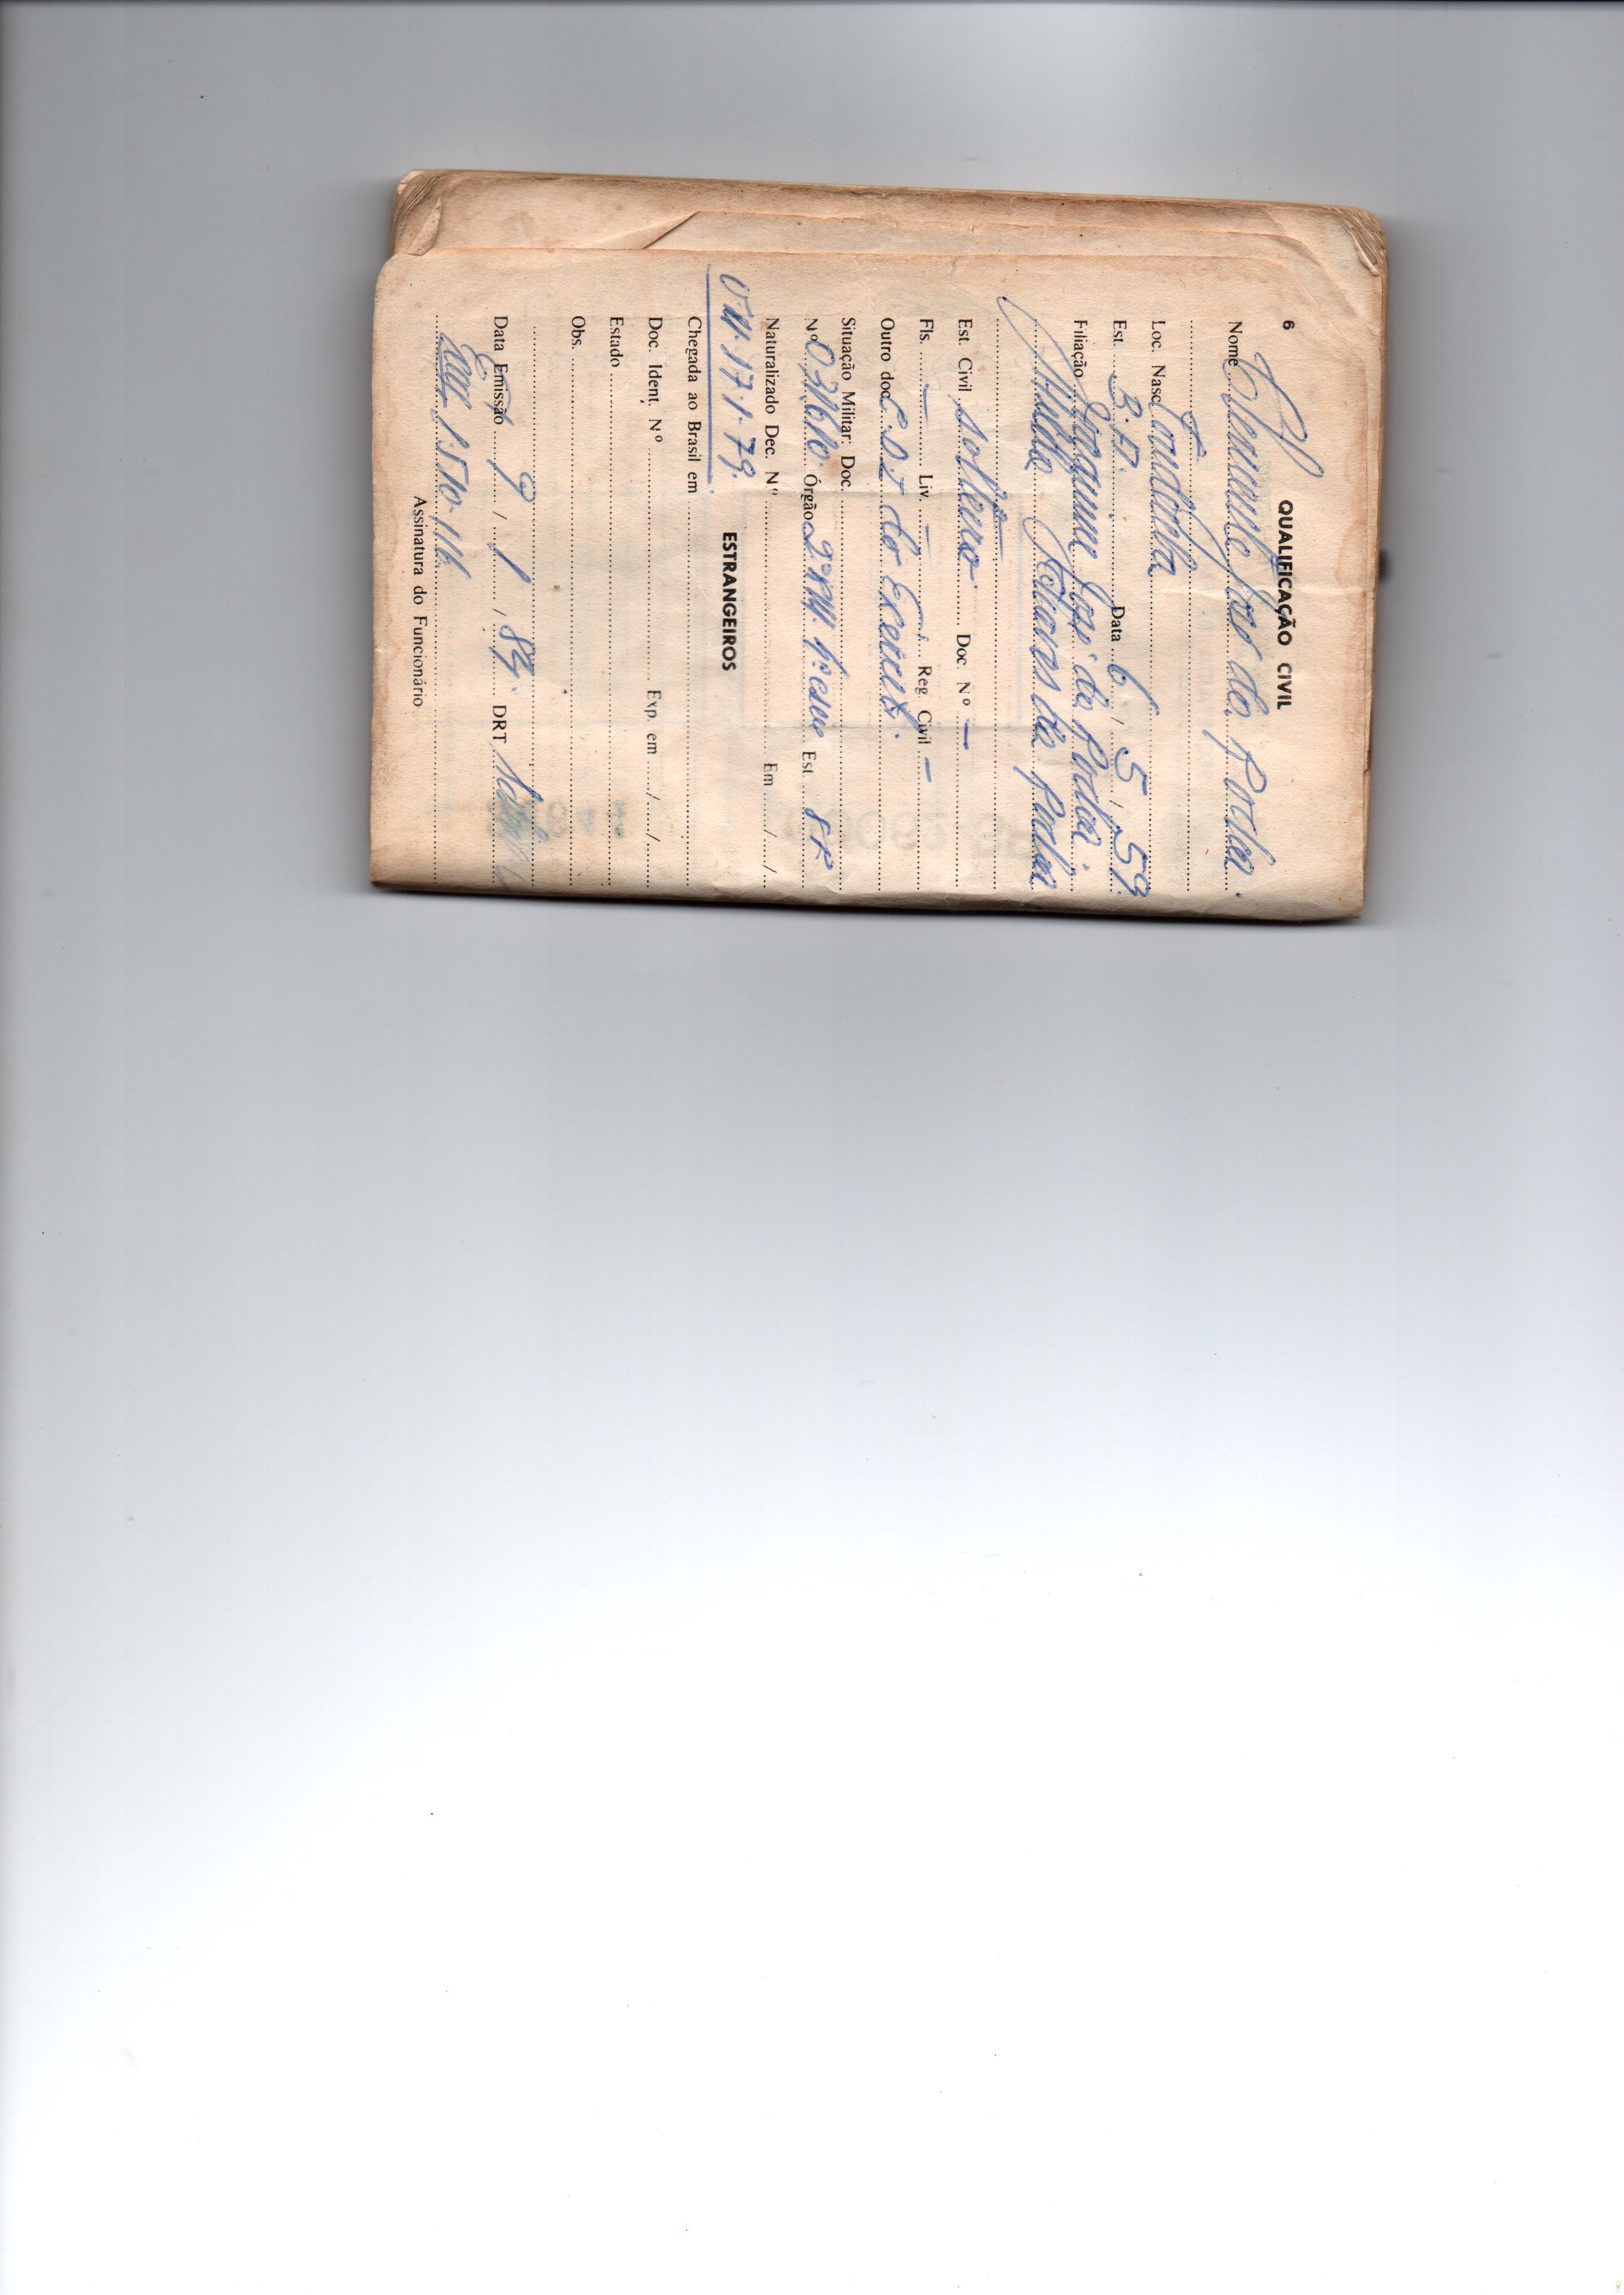 6 QUALIFICAÇÃO CIVIL
Nome José da Rocha.
Loc. Nasc. Candiba
Est. BA. Data 6 / 5 / 59.
Filiação Joaquim José da Rocha.
da Rocha
Est. Civil solteiro Doc. Nº —
Fls. — Liv. — Reg. Civil —
Outro doc. C.D.I do Exercit.
Situação Militar: Doc.
Nº Órgão 2ª RM. 1ª csm Est. SP
Naturalizado Dec. Nº Em / /
17.1.79.
ESTRANGEIROS
Chegada ao Brasil em
Doc. Ident. Nº Exp. em / /
Estado
Obs.
Data Emissão 9 / 1 / 84. DRT
Assinatura do Funcionário